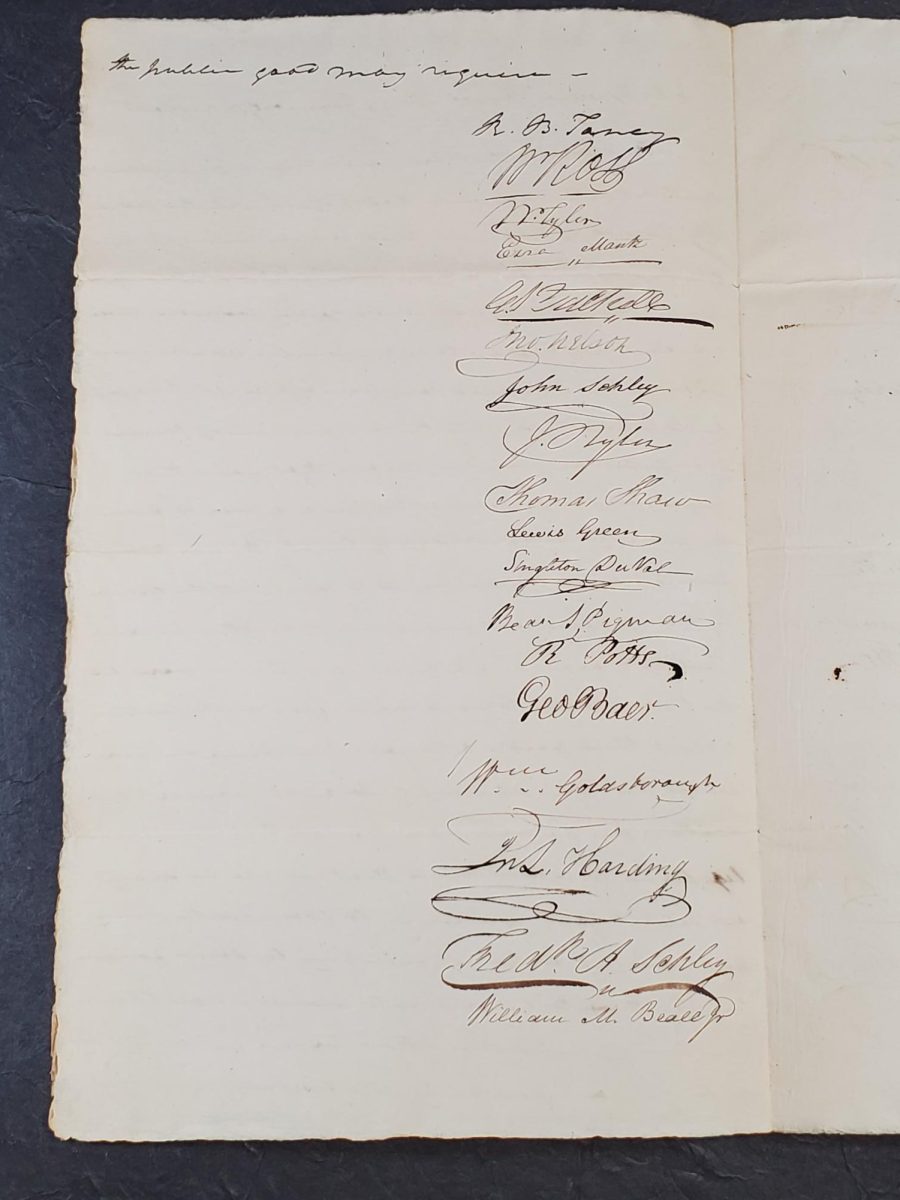 the public good may require –
R. B. Taney
Wm Ross
Wm Tyler
Ezra Mantz
Jno. Nelson
John Schley
J. Tyler
Thomas Shaw
Lewis Green
Singleton DuVal
Bean S. Pigman
R Potts
Geo Baer.
Wm Goldsborough
Jno L. Harding
Fredk. A. Schley
William M. Beall Jr